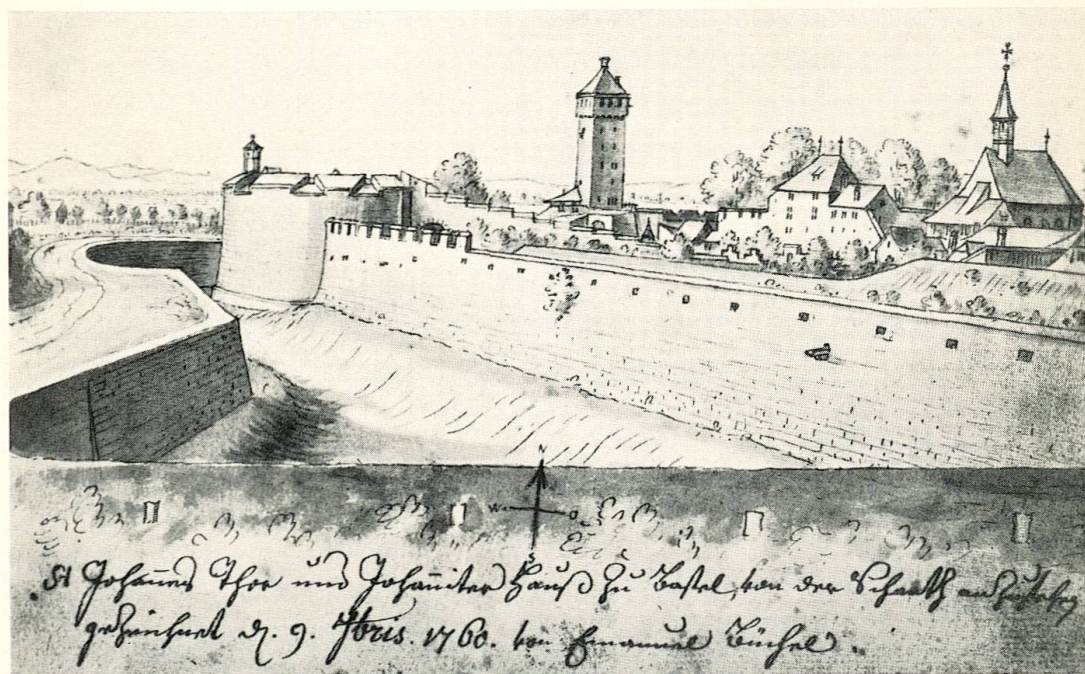 N
W O
S
St Johañes Thor und Johañiter Hauß zu Basel, von der Schantz anzusehen
gezeichnet d. 9. 7bris. 1760. von Emanuel Büchel.